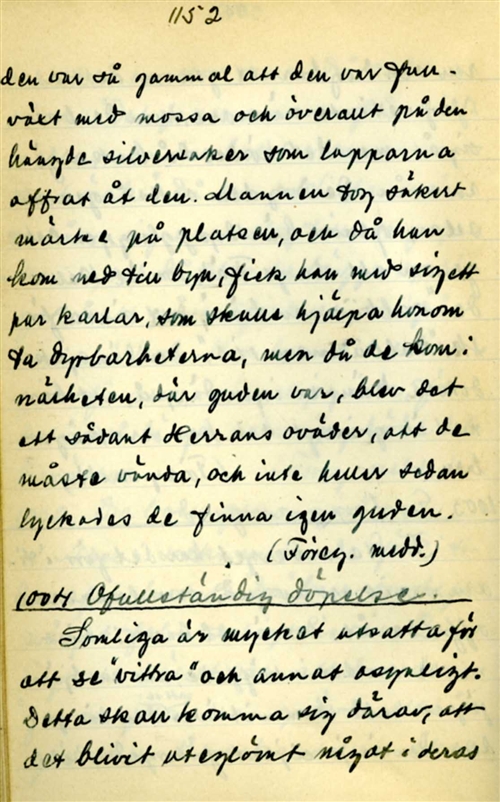 1152
den var så gammal att den var full-
växt med mossa och överallt på den
hängde silversaker som lapparna
offrat åt den. Mannen tog säkert
märke på platsen, och då han
kom ned till byn, fick han med sig ett
par karlar, som skulle hjälpa honom
ta dyrbarheterna, men då de kom i
närheten, där guden var, blev det
ett sådant Herrans oväder, att de
måste vända, och inte heller sedan
lyckades de finna igen guden.
(Föreg. medd.)
1004 Ofullständig döpelse.
Somliga är mycket utsatta för
att se "vittra" och annat osynligt.
Detta skall komma sig därav, att
det blivit utglömt något i deras